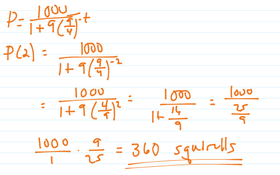 P = 1000 / (1 + 9(9/4)^-t)
P(2) = 1000 / (1 + 9(9/4)^-2)
= 1000 / (1 + 9(4/9)^2) = 1000 / (1 + 16/9) = 1000 / (25/9)
1000/1 · 9/25 = 360 squirrells